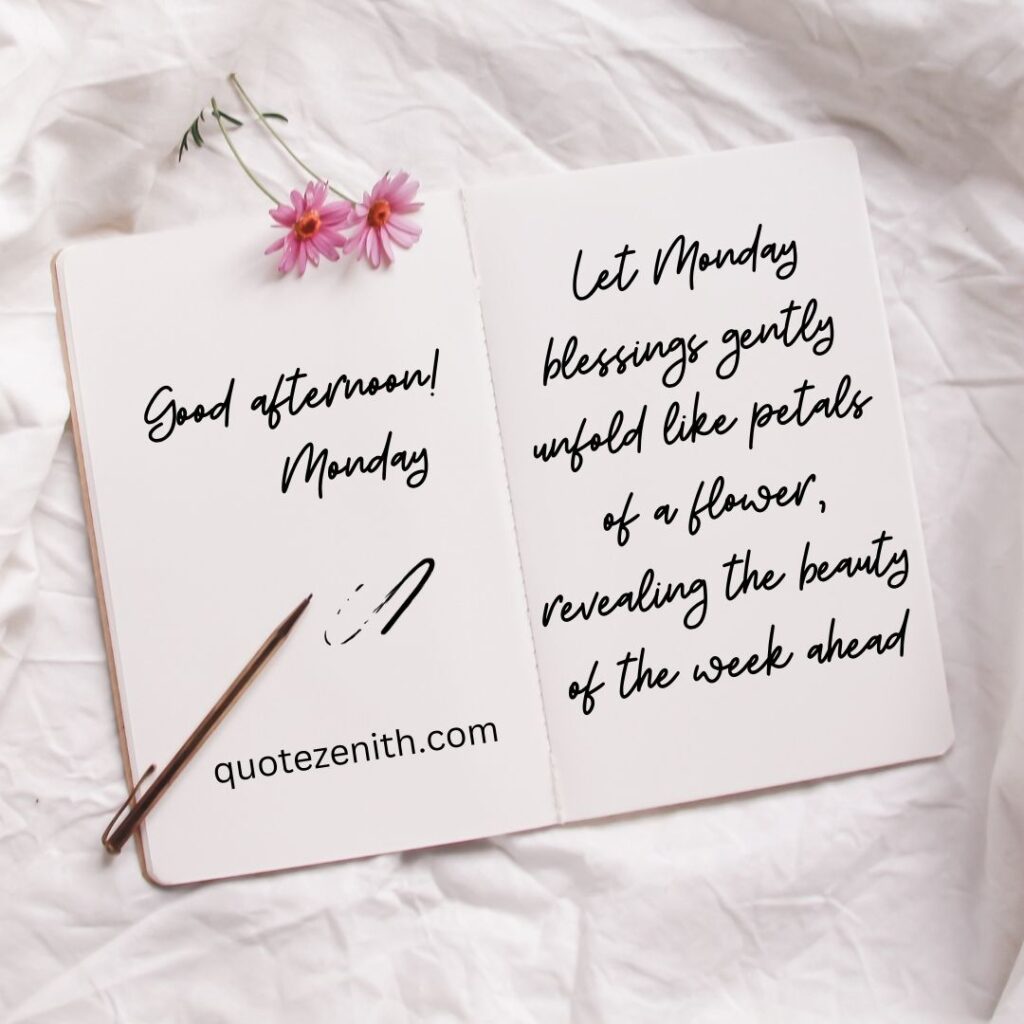 Good afternoon!
Monday
quotezenith.com
Let Monday
blessings gently
unfold like petals
of a flower,
revealing the beauty
of the week ahead